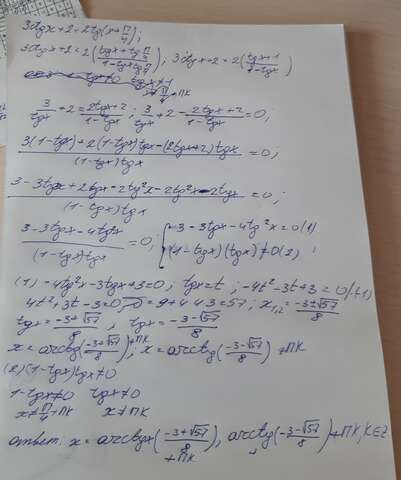 3ctgx+2=2tg(x+π/4);
3ctgx+2=2((tgx+tg π/4)/(1-tgxtg π/4)), 3ctgx+2=2((tgx+1)/(1-tgx))
tgx≠1
x≠π/4+πK
3/tgx+2=(2tgx+2)/(1-tgx); 3/tgx+2-(2tgx+2)/(1-tgx)=0;
(3(1-tgx)+2(1-tgx)tgx-(2tgx+2)tgx)/((1-tgx)tgx)=0;
(3-3tgx+2tgx-2tg²x-2tg²x-2tgx)/((1-tgx)tgx)=0;
(3-3tgx-4tgx)/((1-tgx)tgx)=0; {3-3tgx-4tg²x=0(1)
(1-tgx)(tgx)≠0(2);
(1) -4tg²x-3tgx+3=0; tgx=t; -4t²-3t+3=0/(-1)
4t²+3t-3=0, D=9+4·4·3=57; x₁,₂=(-3±√57)/8
tgx=(-3+√57)/8, tgx=(-3-√57)/8
x=arctg((-3+√57)/8)+πK; x=arctg((-3-√57)/8)+πK
(2)(1-tgx)tgx≠0
1-tgx≠0 tgx≠0
x≠π/4+πK x≠πK
ответ: x=arctgx((-3+√57)/8)+πK, arctg((-3-√57)/8)+πK, K∈Z